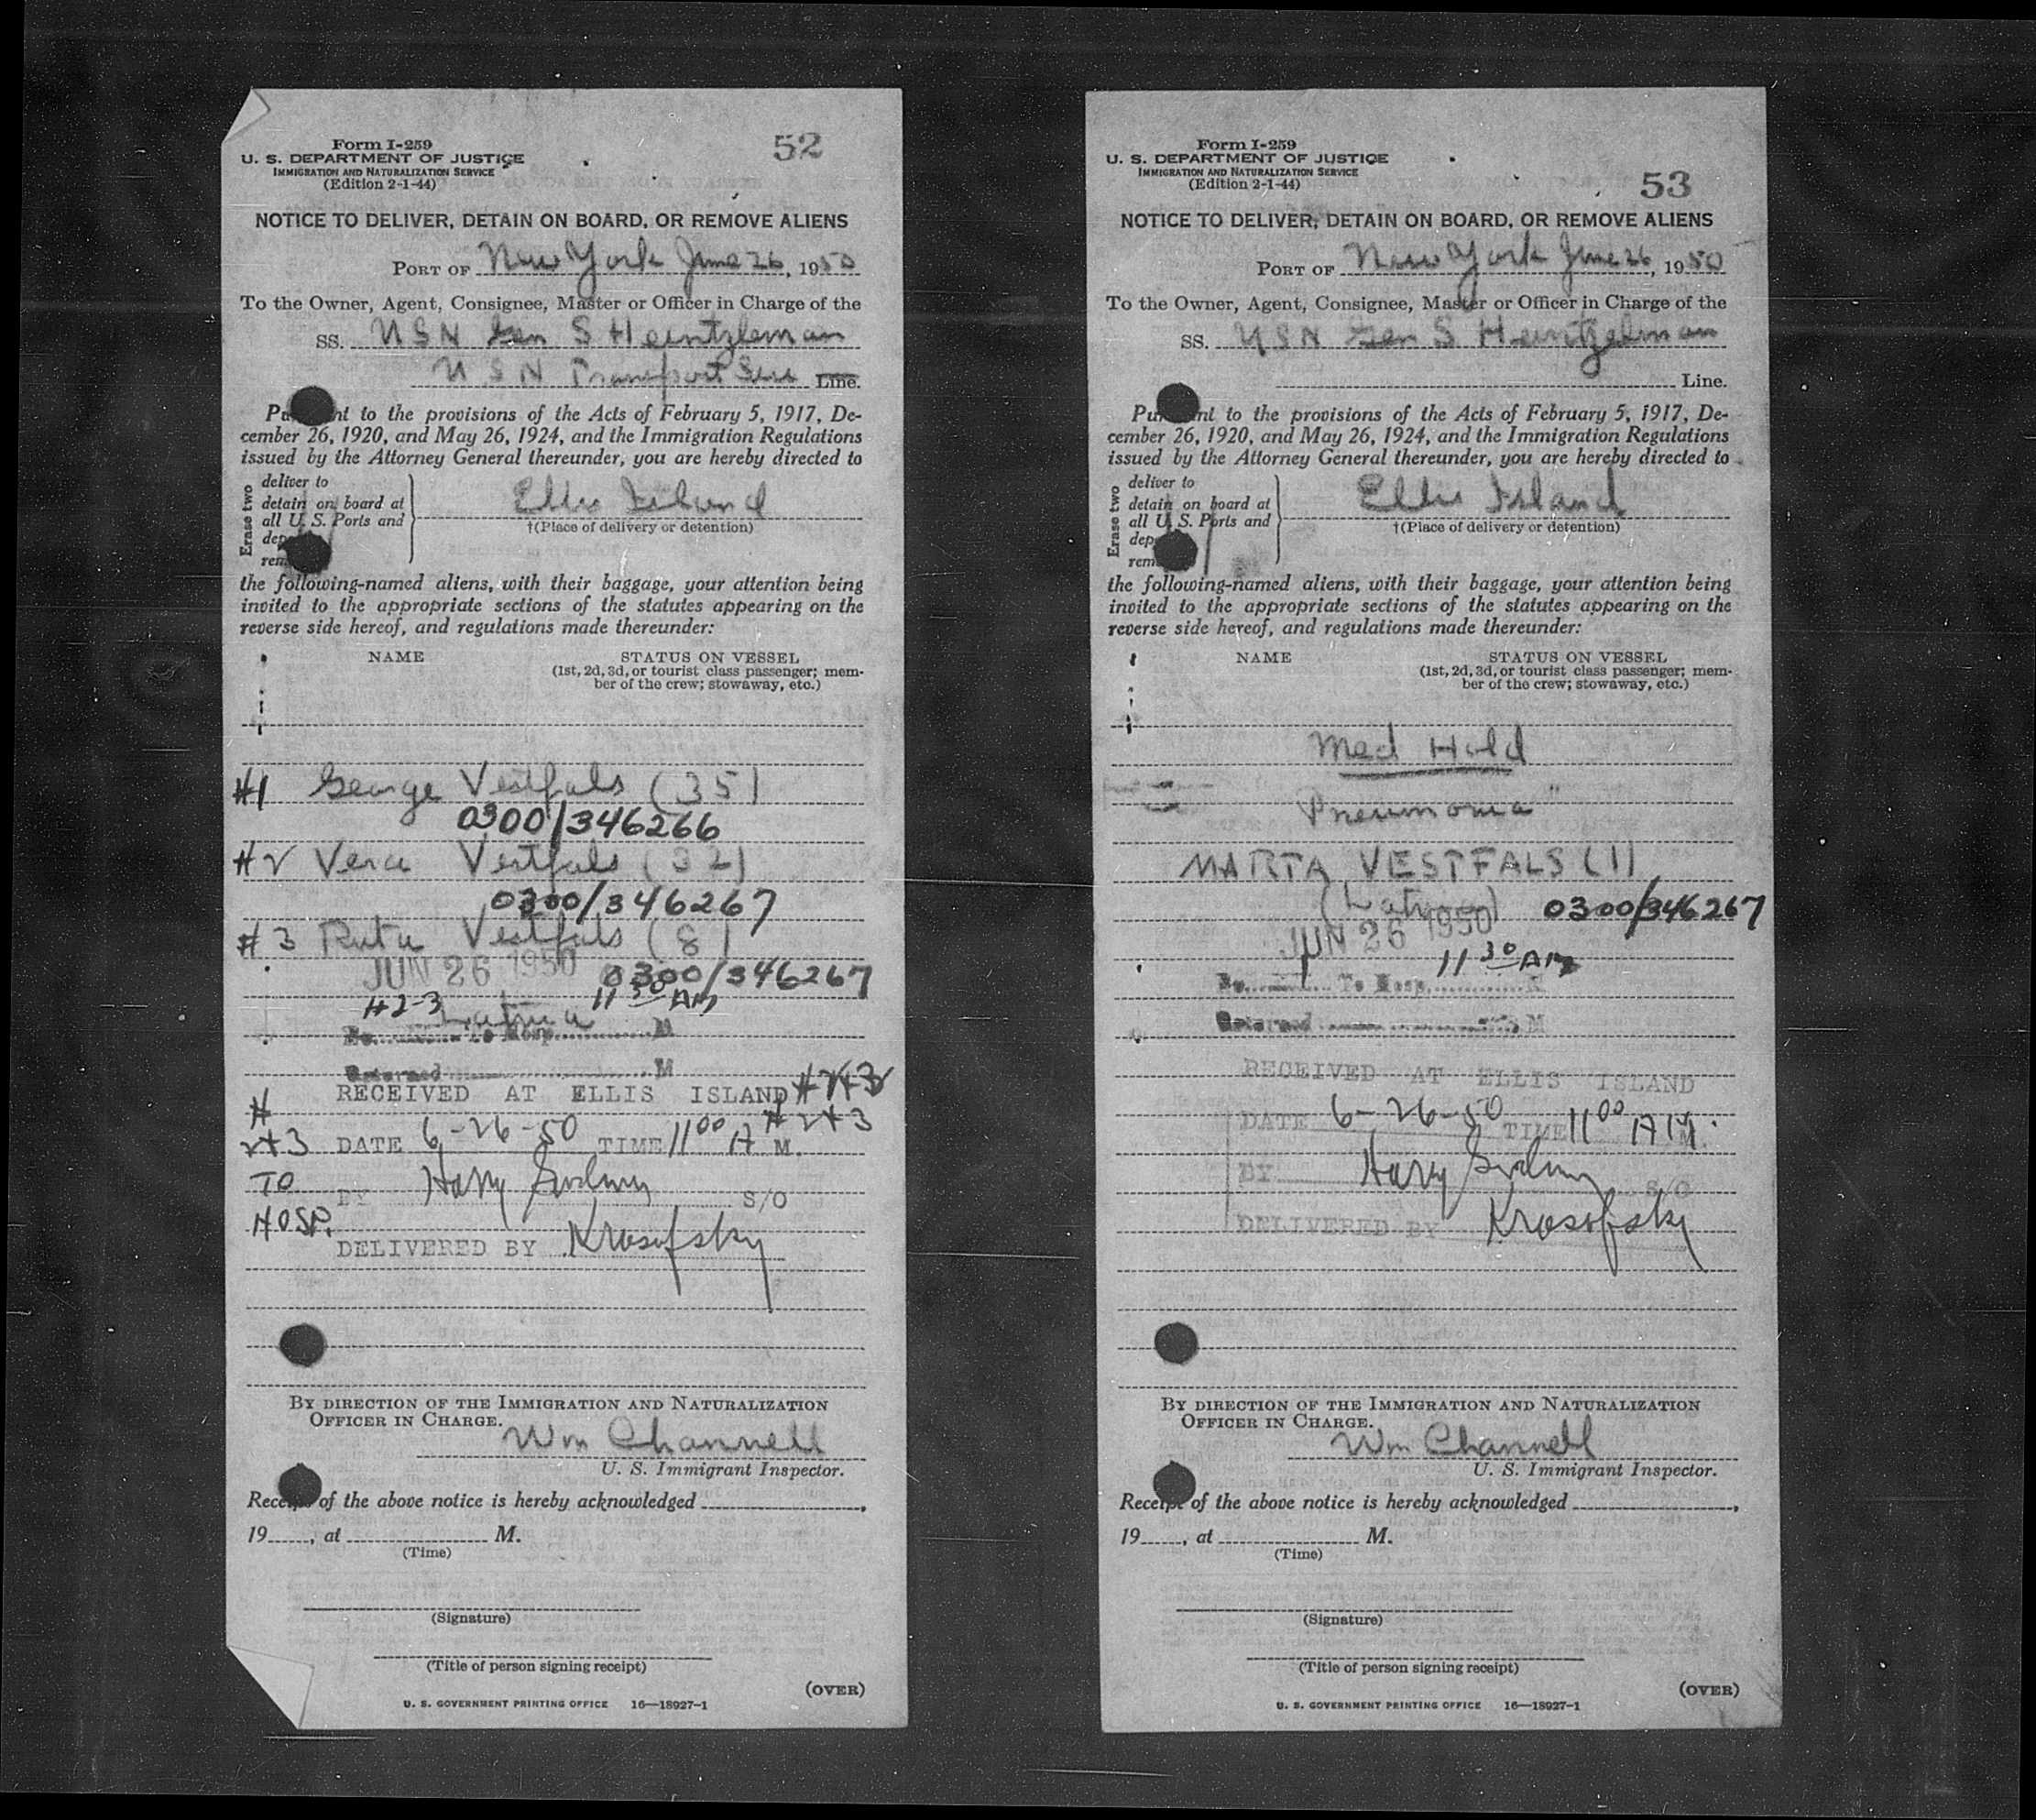 Form I-259
U. S. DEPARTMENT OF JUSTICE
IMMIGRATION AND NATURALIZATION SERVICE
(Edition 2-1-44)
52
NOTICE TO DELIVER, DETAIN ON BOARD, OR REMOVE ALIENS
PORT OF New York June 26, 1950
To the Owner, Agent, Consignee, Master or Officer in Charge of the
SS. USN Gen S Heintzleman
USN Transport Line.
nt to the provisions of the Acts of February 5, 1917, De-
cember 26, 1920, and May 26, 1924, and the Immigration Regulations
issued by the Attorney General thereunder, you are hereby directed to
Erase two
deliver to
detain on board at
all U. S. Ports and
Ellis Island
†(Place of delivery or detention)
the following-named aliens, with their baggage, your attention being
invited to the appropriate sections of the statutes appearing on the
reverse side hereof, and regulations made thereunder:
NAME STATUS ON VESSEL
(1st, 2d, 3d, or tourist class passenger; mem-
ber of the crew; stowaway, etc.)
#1 George Vestfals (35)
0300/346266
#2 Vera Vestfals (32)
0300/346267
#3 Ruta Vestfals (8)
JUN 26 1950 0300/346267
#2-3 Latvia 11 30 AM
No. To Hosp. M
Returned M
RECEIVED AT ELLIS ISLAND #2+3
# #2+3
2+3 DATE 6-26-50 TIME 11 00 A M.
TO BY Harry S/O
HOSP.
DELIVERED BY Krasofsky
BY DIRECTION OF THE IMMIGRATION AND NATURALIZATION
OFFICER IN CHARGE.
Wm Channell
U. S. Immigrant Inspector.
Receipt of the above notice is hereby acknowledged ,
19 , at M.
(Time)
(Signature)
(Title of person signing receipt)
(OVER)
U. S. GOVERNMENT PRINTING OFFICE 16—18927-1
Form I-259
U. S. DEPARTMENT OF JUSTICE
IMMIGRATION AND NATURALIZATION SERVICE
(Edition 2-1-44)
53
NOTICE TO DELIVER, DETAIN ON BOARD, OR REMOVE ALIENS
PORT OF New York June 26, 1950
To the Owner, Agent, Consignee, Master or Officer in Charge of the
SS. USN Gen S Heintzelman
Line.
nt to the provisions of the Acts of February 5, 1917, De-
cember 26, 1920, and May 26, 1924, and the Immigration Regulations
issued by the Attorney General thereunder, you are hereby directed to
Erase two
deliver to
detain on board at
all U. S. Ports and
Ellis Island
†(Place of delivery or detention)
the following-named aliens, with their baggage, your attention being
invited to the appropriate sections of the statutes appearing on the
reverse side hereof, and regulations made thereunder:
NAME STATUS ON VESSEL
(1st, 2d, 3d, or tourist class passenger; mem-
ber of the crew; stowaway, etc.)
Med Hold
"Pneumonia"
MARTA VESTFALS (1)
(Latvia) 0300/346267
JUN 26 1950
11 30 AM
No. 1 To Hosp. M
Returned M
RECEIVED AT ELLIS ISLAND
DATE 6-26-50 TIME 11 00 A M.
BY Harry S/O
DELIVERED BY Krasofsky
BY DIRECTION OF THE IMMIGRATION AND NATURALIZATION
OFFICER IN CHARGE.
Wm Channell
U. S. Immigrant Inspector.
Receipt of the above notice is hereby acknowledged ,
19 , at M.
(Time)
(Signature)
(Title of person signing receipt)
(OVER)
U. S. GOVERNMENT PRINTING OFFICE 16—18927-1